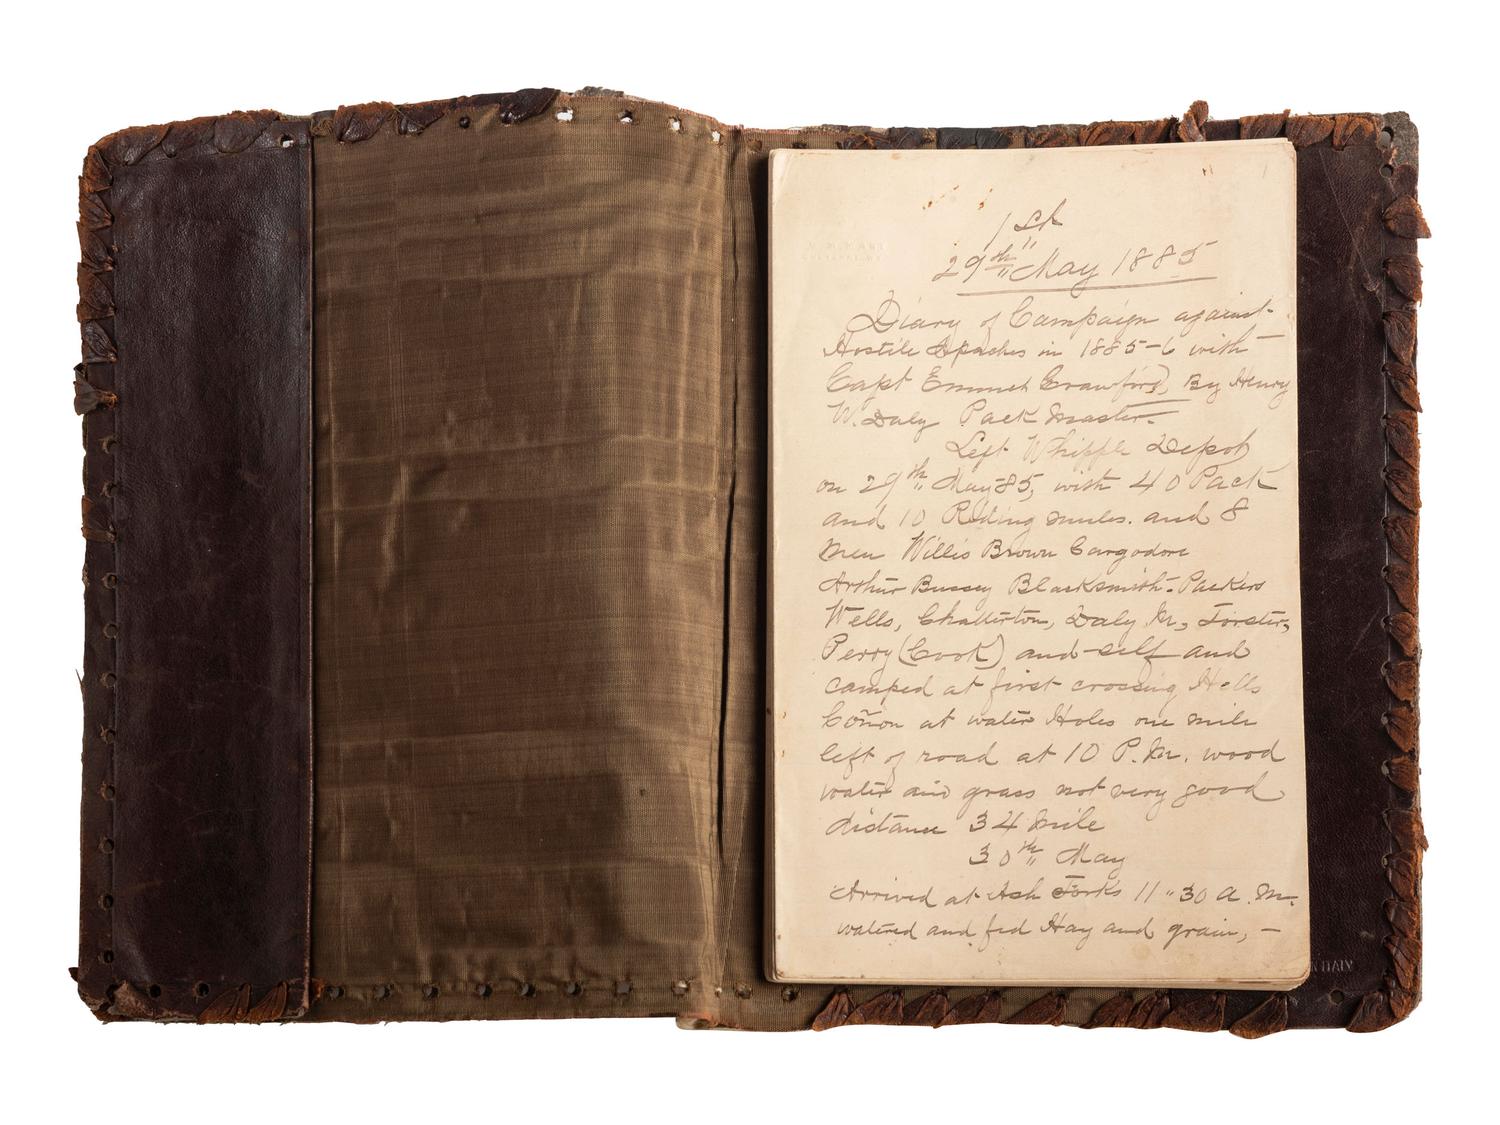 1st
29th May 1885
Diary of Campaign against
Hostile Apaches in 1885-6 with
Capt Emmet Crawford, By Henry
W. Daly Pack Master.
Left Whipple Depot
on 29th May 85, with 40 Pack
and 10 Riding mules. and 8
men Willis Brown Cargodore
Arthur Bussey Blacksmith-Packers
Wells, Chatterton, Daly M, Forster,
Perry (Cook) and self and
camped at first crossing Hells
Cañon at water Holes one mile
left of road at 10 P.M. wood
water and grass not very good
distance 34 Mile
30th May
Arrived at Ash Forks 11"30 A.M.
watered and fed Hay and grain, —
ITALY